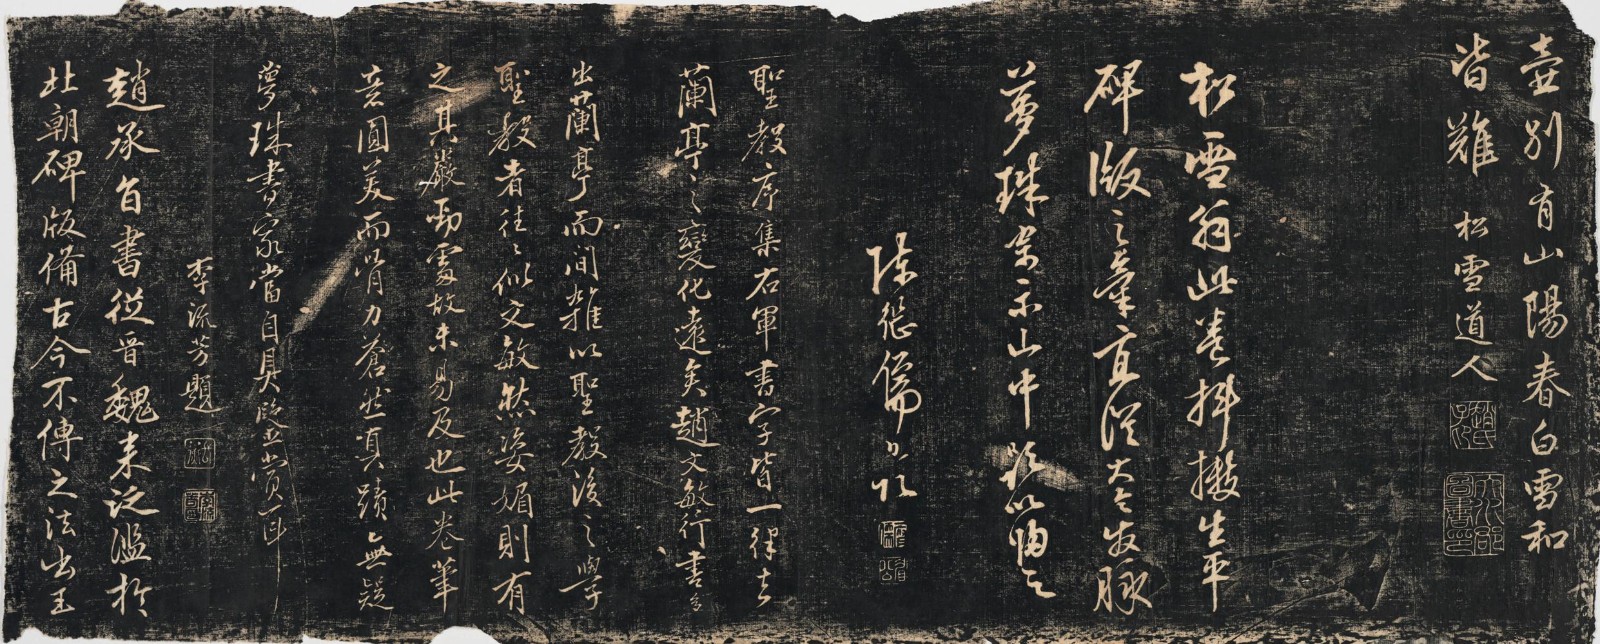 壺別有山陽春白雪和
皆難 松雪道人
松雪翁此卷抖擻生平
碑版之筆直從大令發脉
夢珠宗示山中題以歸之
陳繼儒
聖教序集右軍書字皆一律去
蘭亭之變化遠矣趙文敏行書多
出蘭亭而間雜以聖教後之學
聖教者往往似文敏然姿媚則有
之其嚴勁處故未易及也此卷筆
意圓美而骨力蒼然真蹟無疑
夢珠書家當自具段並賞耳
李流芳題
趙承旨書從晉魏來泛濫於
北朝碑版備古今不傳之法出王